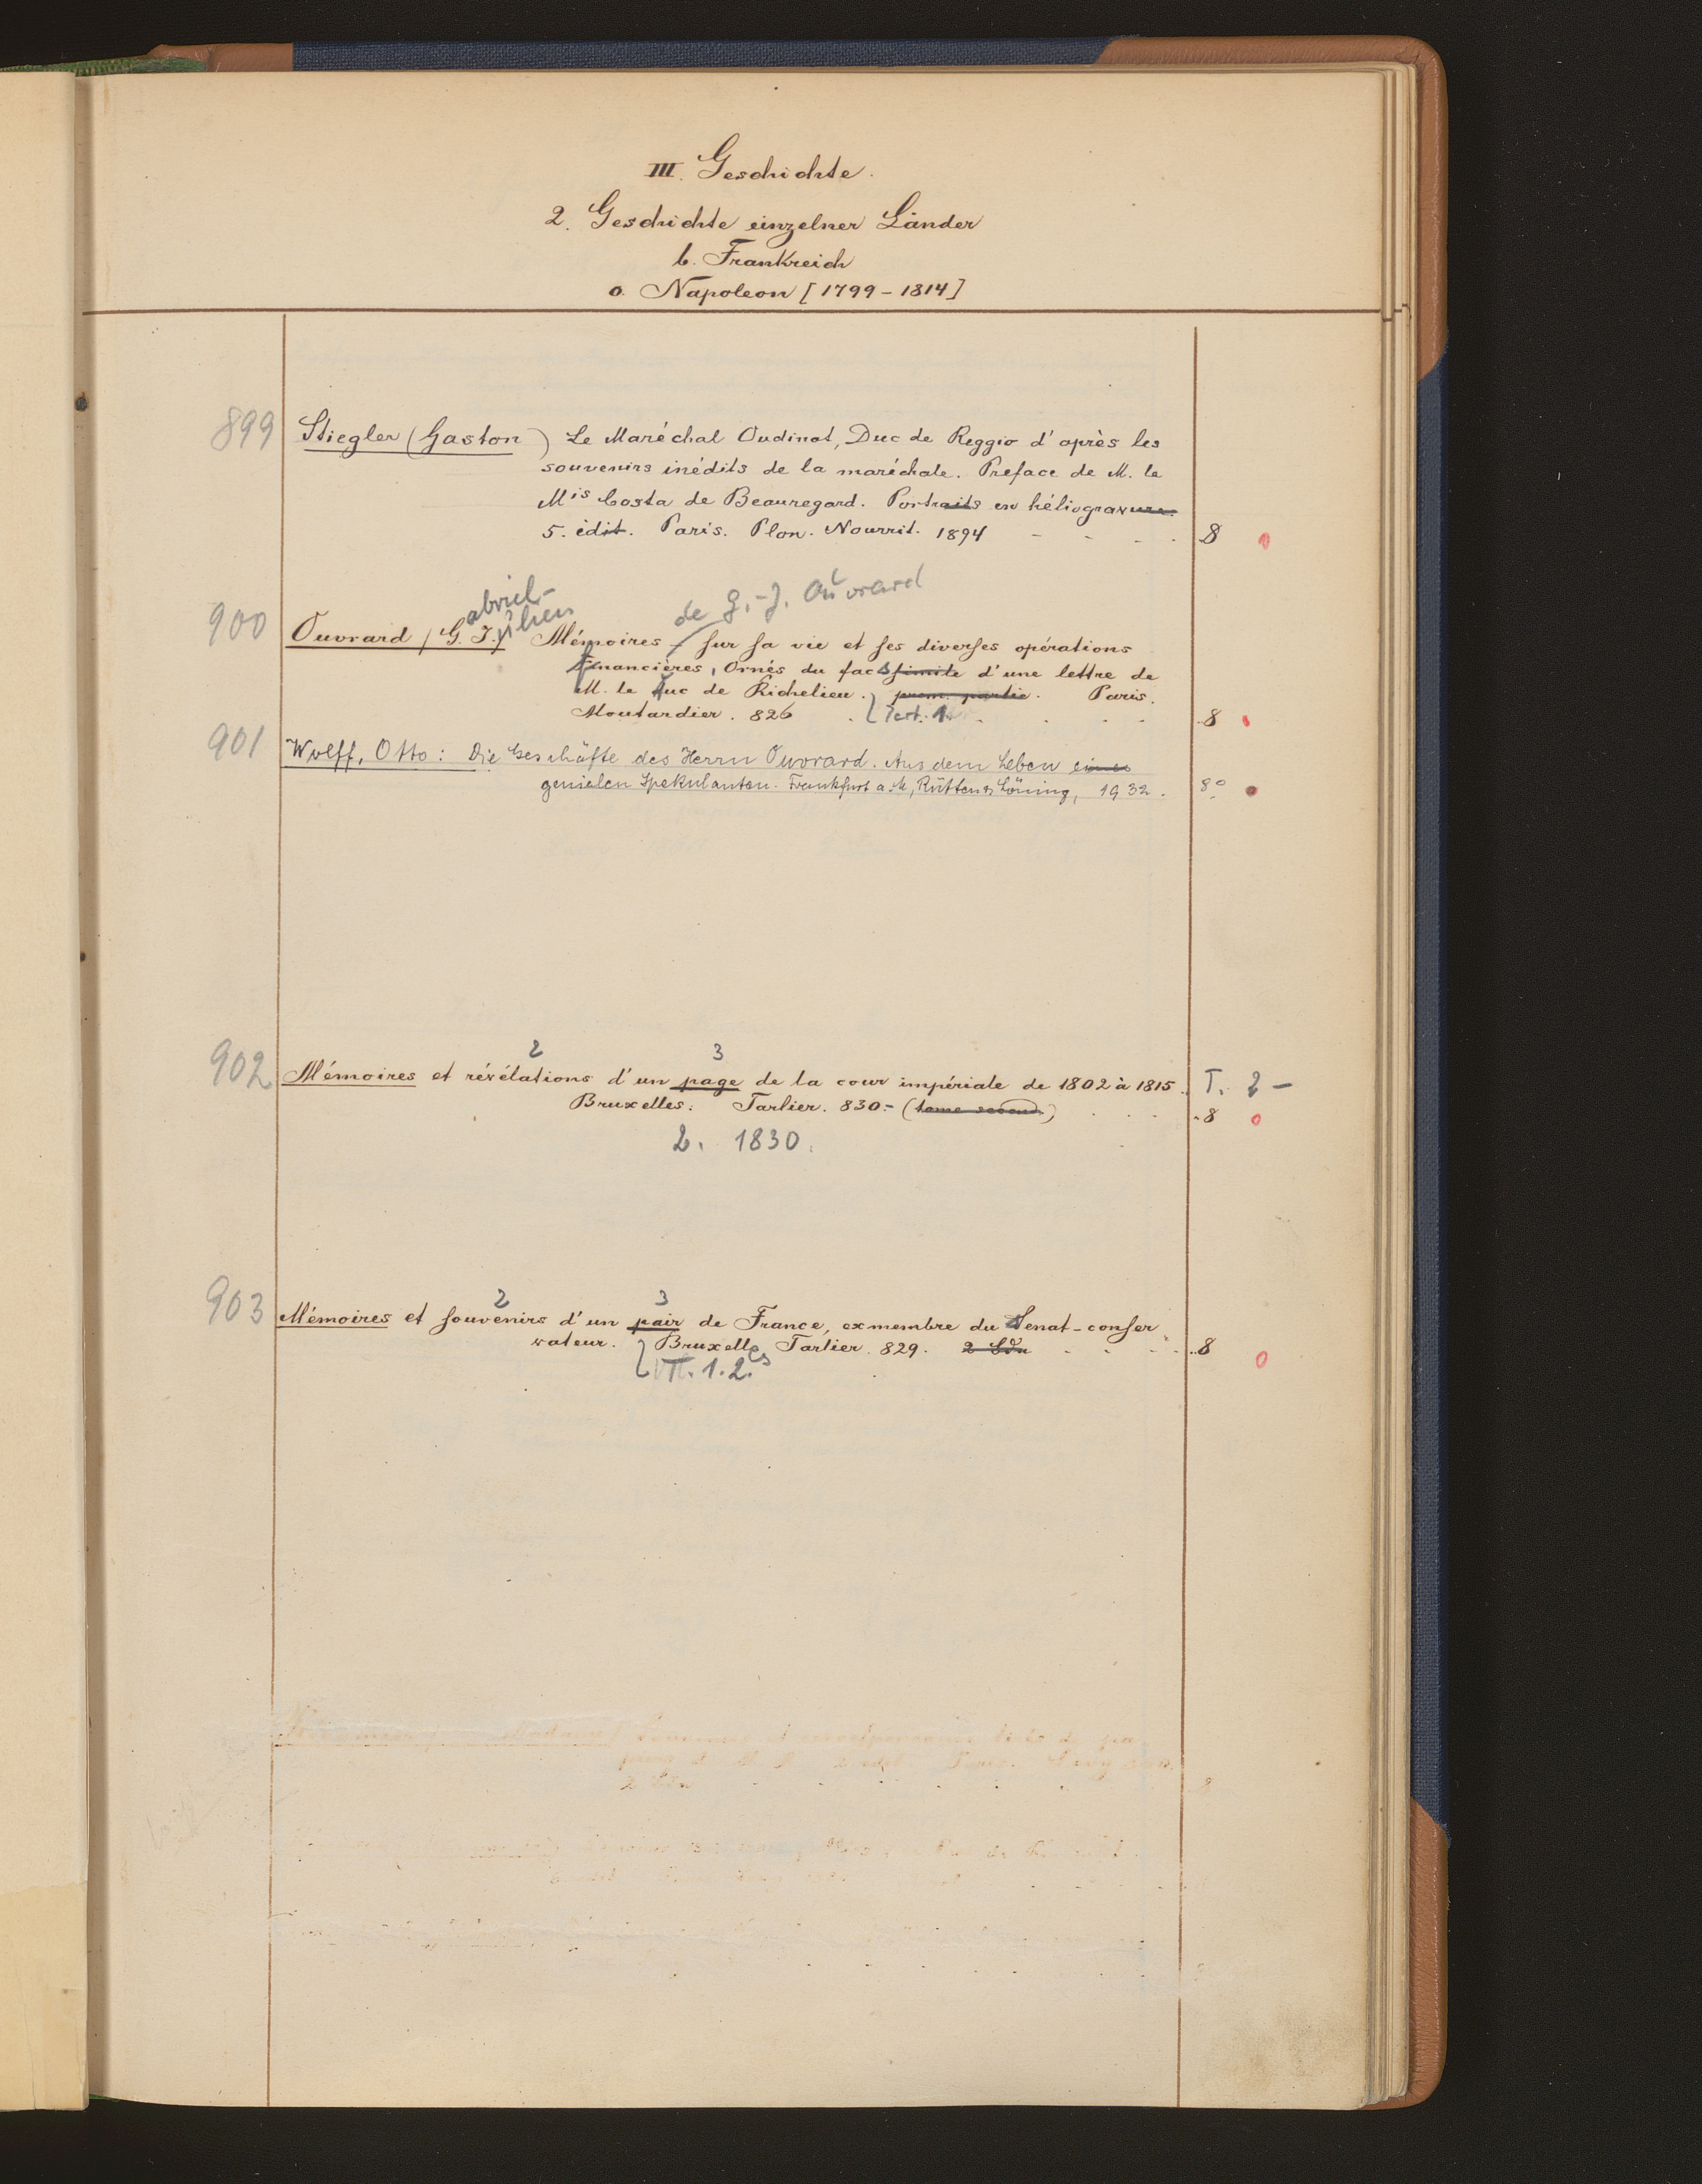 III. Geschichte.
2. Geschichte einzelner Länder
b. Frankreich
o. Napoleon [1799-1814]
899 Stiegler (Gaston) Le Maréchal Oudinot, Duc de Reggio d'après les
souvenirs inédits de la maréchale. Preface de M. le
Mis Costa de Beauregard. Portraits en héliogravure.
5. édit. Paris. Plon. Nourrit. 1894 - - - . 8 0
abriel-
ulien
de G.-J. Ouvrard
900 Ouvrard (G. J.) Mémoires sur sa vie et ses diverses opérations
financières, Ornés du facsimile d'une lettre de
M. le duc de Richelieu. prem. partie. Paris.
Moutardier. 826 . 1. . . . 8
901 Wolff, Otto: Die Geschäfte des Herrn Ouvrard. Aus dem Leben eines
genialen Spekulanten. Frankfurt a. M, Rütten & Löning, 1932. 8°
2 3
902 Mémoires et révélations d'un page de la cour impériale de 1802 à 1815. T. 2 -
Bruxelles. Tarlier. 830.- (tome second) . . . 8 0
2. 1830.
2 3
903 Mémoires et souvenirs d'un pair de France, exmembre du Senat-conser
vateur. Bruxelles Tarlier. 829. 2 Bde . . . 8 0
T. 1. 2.